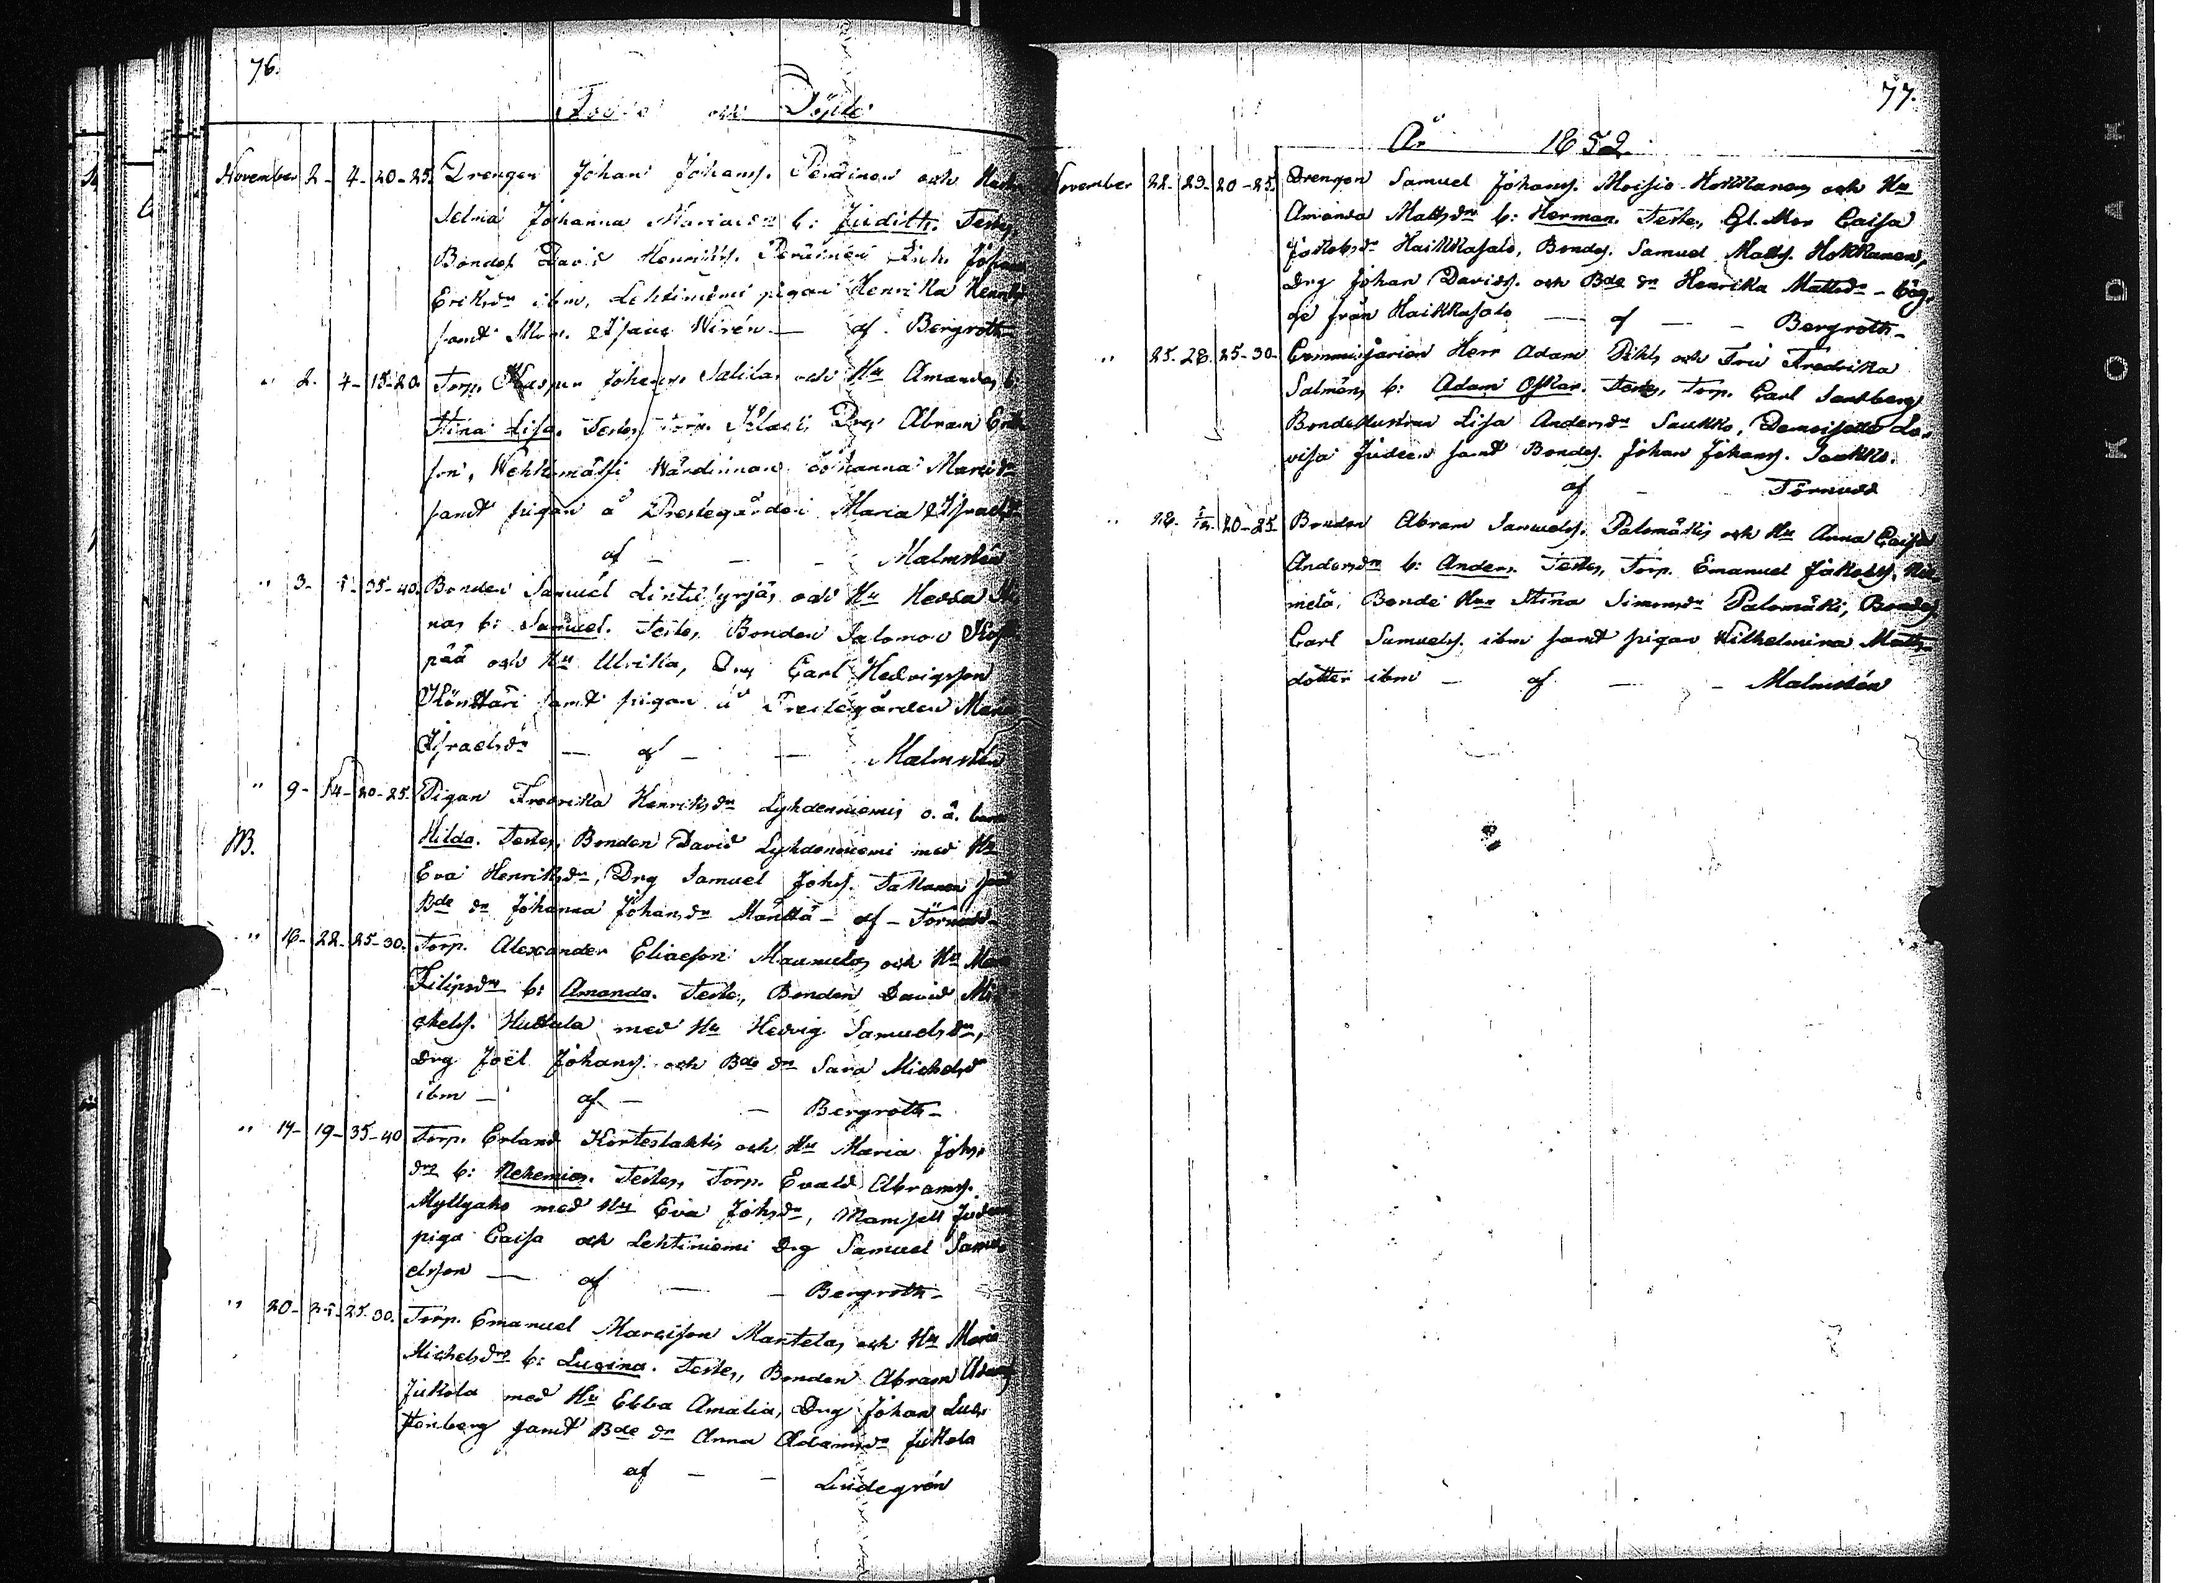 76.
Födde och Döpte
November 2- 4- 20-25. Drengen Johan Johanss. Peräinen och Hustru
Selma Johanna Mariædr b: Judith. Testes,
Bonden David Henrikss. Peräinen Enk. Johanna
Eriksdr ibm, Lehtiniemi pigan Henrika Henriksdr
samt Isaac Wirén. — af Bergroth
" 2. 4- 15-20. Torp. Kasper Johanss. Salilas och Hu Amandas b:
Stina Lisa. Testes, Torp. Drg Abram Erik
son, Wehkamäki Wärdinnan Johanna
samt pigan å Prestegården Maria Israelsdr
af - - - Malmstén
" 3- 35-40. Bonden Samuel Lintusyrjäs och Hu Hedda
nas b: Samuel. Testes, Bonden Salomon
pää och Hu Ulrika, Drg Carl Hedvigsson
Köndtäri samt pigan å Prestegården Maria
Israelsdr — af - — Malmstén
" 9- 14- 20-25. Pigan Fredrika Henriksdr Lyhdenniemis o. ä. barn
NB. Hilda. Testes, Bonden David Lyhdenniemi med Hu
Eva Henriksdr, Drg Samuel Johss. Takanen samt
Bde dr Johanna Johansdr Mänttä - af - Törnudd
" 16- 22- 25-30. Torp. Alexander Eliaeson Maunulas och Hu Maria
Filipsdrs b: Amanda. Testes, Bonden David Mi-
chelss. Huttula med Hu Hedvig Samuelsdr,
Drg Joël Johanss. och Bde dr Sara Michelsdr
ibm - af - - Bergroth-
" 17- 19- 35-40 Torp. Erland Kortelahtis och Hu Maria Johs.
drs b: Nehemias. Testes, Torp. Evald Abramss.
Myllyaho med Hu Eva Johsdr, Mamsell Judens
piga Caisa och Lehtiniemi Drg Samuel Samu-
elsson — af — - Bergroth-
" 20- 25- 25-30. Torp. Emanuel Marcisson Mantelas och Hu Maria
Michelsdrs b: Lucina. Testes, Bonden Abram Adamss
Jukola med Hu Ebba Amalia, Drg Johan
samt Bde dr Anna Adamsdr Jukola
af - - Lindegrén
77.
År 1852
November 22- 29- 20-25. Drengen Samuel Johanss. Moisio-Hokkanens och Hu
Amanda Mattsdrs b: Herman. Testes, Gl. Mor Caisa
Jakobsdr Haikkasalo, Bondes. Samuel Matts. Hokkanen,
Drg Johan Davids. och Bde dr Henrika Mattsdr -
ge från Haikkasalo — af — - Bergroth-
" 25. 28. 25-30- Commissarien Herr Adam Pihls och Fru Fredrika
Salméns b: Adam Oskar. Testes, Torp. Carl Sandberg
Bondehustrun Lisa Andersdr Saukko, Demoiselle Lo-
visa Judeen samt Bondes. Johan Johanss. Saukko.
af - - Törnudd
" 28. 20-25 Bonden Abram Samuelss. Palomäkis och Hu Anna Caisa
Andersdrs b: Anders. Testes, Torp. Emanuel Jakobss.
metä, Bonde Hun Stina Simonsdr Palomäki, Bondes.
Carl Samuelss. ibm samt pigan Wilhelmina Matts-
dotter ibm - af — - Malmstén
KODAK